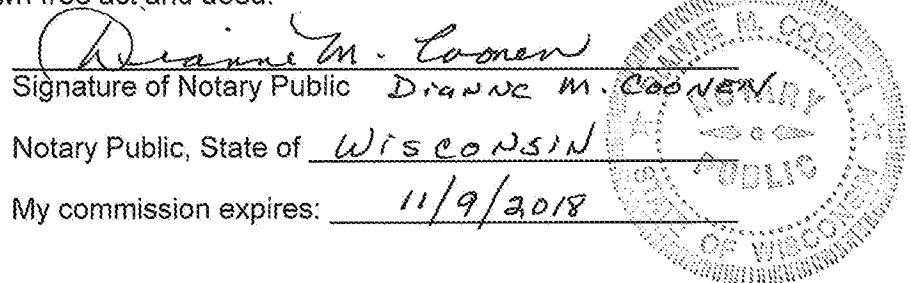 own free act and deed.
Dianne M. Coonen
Signature of Notary Public Dianne M. Coonen
Notary Public, State of Wisconsin
My commission expires: 11/9/2018
DIANNE M. COONEN
NOTARY
PUBLIC
STATE OF WISCONSIN